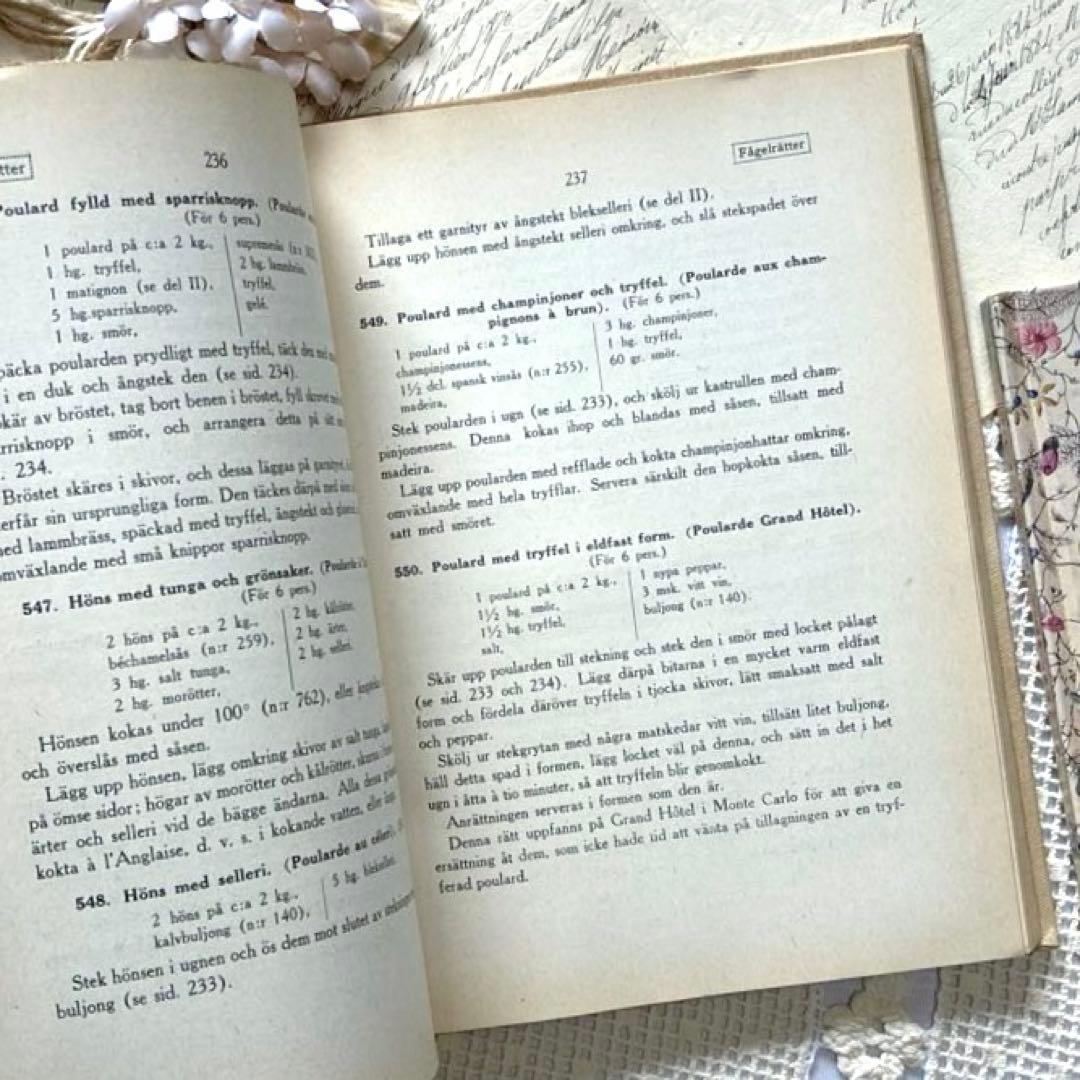 tter
236
Poulard fylld med sparrisknopp.
(För 6 pers.)
1 poulard på c:a 2 kg.,
1 hg. tryffel,
1 matignon (se del II),
5 hg. sparrisknopp,
1 hg. smör,
2 hg.
tryffel,
gelé.
päcka poularden prydligt med tryffel, täck den
i en duk och ångstek den (se sid. 234).
kär av bröstet, tag bort benen i bröstet, fyll
rrisknopp i smör, och arrangera detta på
. 234.
Bröstet skäres i skivor, och dessa läggas på
erfår sin ursprungliga form. Den täckes därpå med
ed lammbräss, späckad med tryffel, ångstekt och
mväxlande med små knippor sparrisknopp.
547. Höns med tunga och grönsaker.
(För 6 pers.)
2 höns på c:a 2 kg.,
béchamelsås (n:r 259),
3 hg. salt tunga,
2 hg. morötter,
2 hg. kålrötter,
2 hg. ärter,
2 hg. selleri.
Hönsen kokas under 100° (n:r 762), eller
och överslås med såsen.
Lägg upp hönsen, lägg omkring skivor av salt tunga,
på ömse sidor; högar av morötter och kålrötter,
ärter och selleri vid de bägge ändarna. Alla dessa
kokta à l'Anglaise, d. v. s. i kokande vatten, eller
548. Höns med selleri. (Poularde au céleri).
2 höns på c:a 2 kg.,
kalvbuljong (n:r 140),
5 hg. blekselleri.
Stek hönsen i ugnen och ös dem mot slutet av
buljong (se sid. 233).
Fågelrätter
237
Tillaga ett garnityr av ångstekt blekselleri (se del II).
Lägg upp hönsen med ångstekt selleri omkring, och slå stekspadet över
dem.
549. Poulard med champinjoner och tryffel. (Poularde aux cham-
pignons à brun). (För 6 pers.)
1 poulard på c:a 2 kg.,
champinjonessens,
1½ dcl. spansk vinsås (n:r 255),
madeira,
3 hg. champinjoner,
1 hg. tryffel,
60 gr. smör.
Stek poularden i ugn (se sid. 233), och skölj ur kastrullen med cham-
pinjonessens. Denna kokas ihop och blandas med såsen, tillsatt med
madeira.
Lägg upp poularden med refflade och kokta champinjonhattar omkring,
omväxlande med hela tryfflar. Servera särskilt den hopkokta såsen, till-
satt med smöret.
550. Poulard med tryffel i eldfast form. (Poularde Grand Hôtel).
(För 6 pers.)
1 poulard på c:a 2 kg.,
1½ hg. smör,
1½ hg. tryffel,
salt,
1 nypa peppar,
3 msk. vitt vin,
buljong (n:r 140).
Skär upp poularden till stekning och stek den i smör med locket pålagt
(se sid. 233 och 234). Lägg därpå bitarna i en mycket varm eldfast
form och fördela däröver tryffeln i tjocka skivor, lätt smaksatt med salt
och peppar.
Skölj ur stekgrytan med några matskedar vitt vin, tillsätt litet buljong,
häll detta spad i formen, lägg locket väl på denna, och sätt in det i het
ugn i åtta à tio minuter, så att tryffeln blir genomkokt.
Anrättningen serveras i formen som den är.
Denna rätt uppfanns på Grand Hôtel i Monte Carlo för att giva en
ersättning åt dem, som icke hade tid att vänta på tillagningen av en tryf-
ferad poulard.